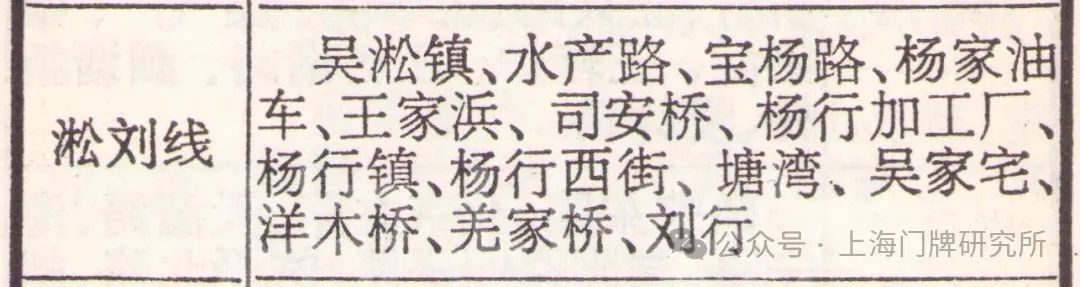 淞刘线
吴淞镇、水产路、宝杨路、杨家油
车、王家浜、司安桥、杨行加工厂、
杨行镇、杨行西街、塘湾、吴家宅、
洋木桥、羌家桥、刘行
公众号 · 上海门牌研究所